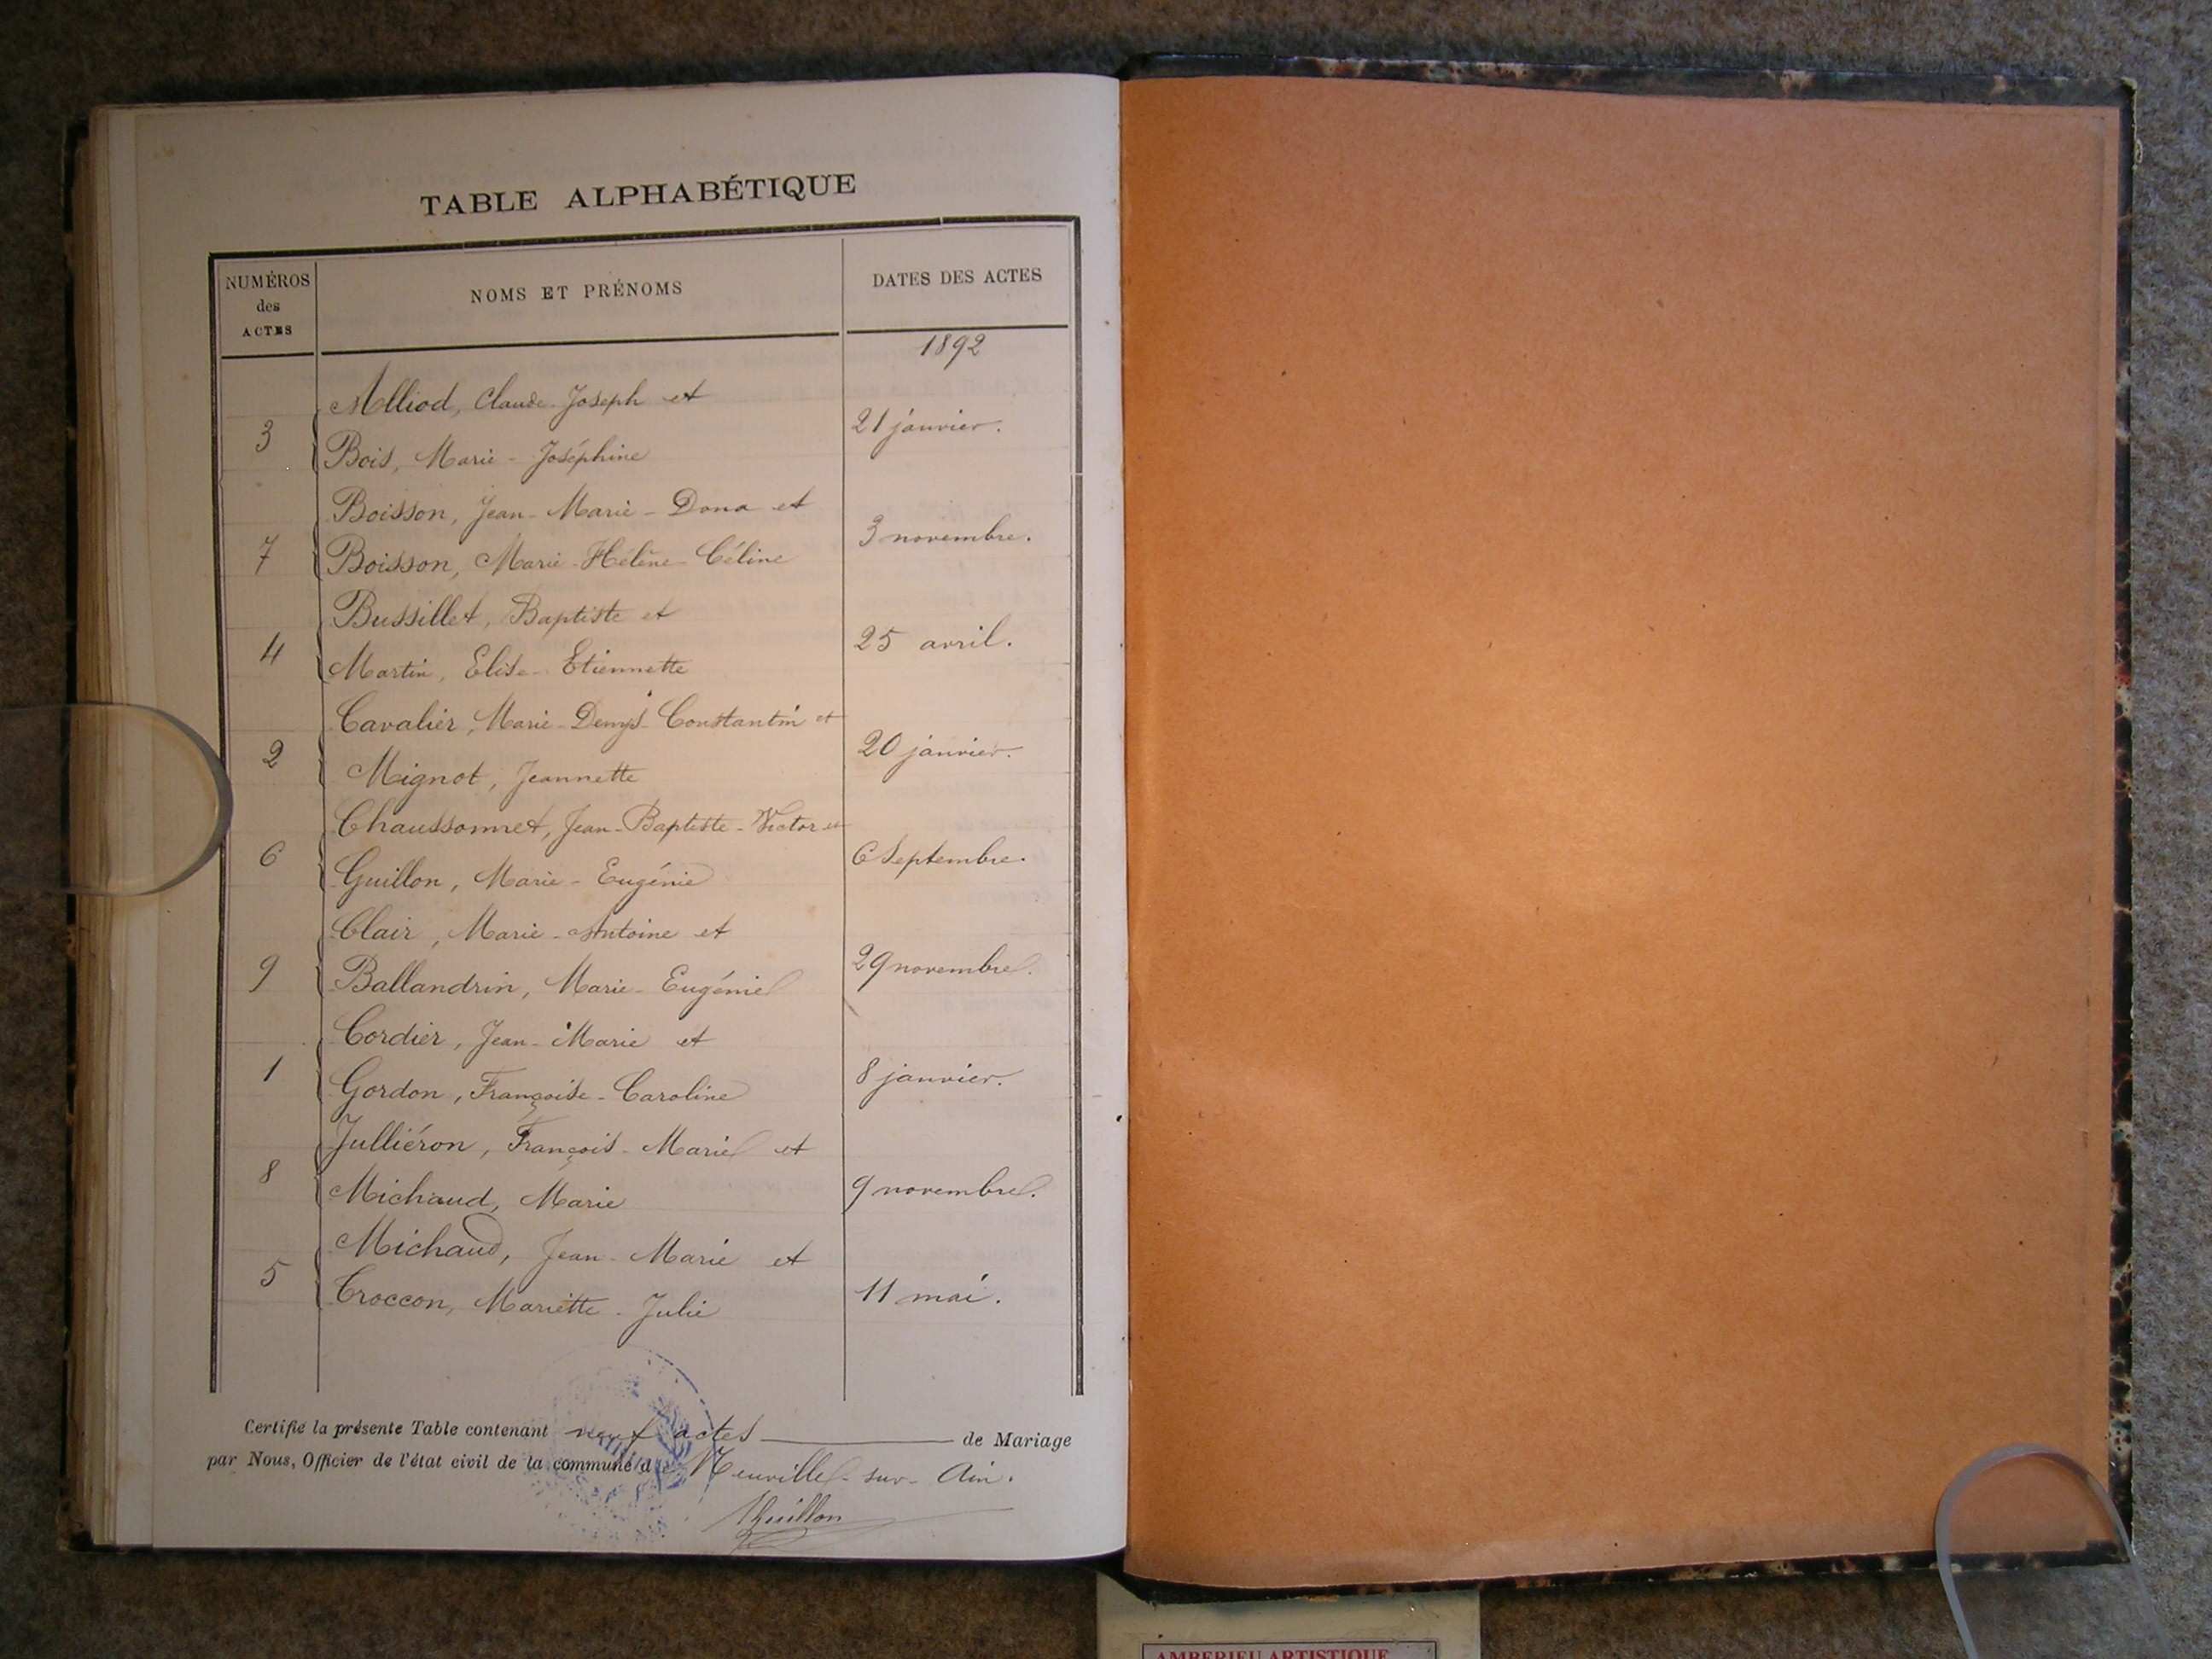 TABLE ALPHABÉTIQUE
NUMÉROS des ACTES
NOMS ET PRÉNOMS
DATES DES ACTES
1892
Alliod, Claude-Joseph et
3
21 janvier.
Bois, Marie-Joséphine
Boisson, Jean-Marie-Dona et
7
3 novembre.
Boisson, Marie-Hélène-Céline
Bussillet, Baptiste et
4
25 avril.
Martin, Elise-Etiennette
Cavalier, Marie-Denys-Constantin et
2
20 janvier.
Mignot, Jeannette
Chaussonnet, Jean-Baptiste-Victor et
6
6 Septembre.
Guillon, Marie-Eugénie
Clair, Marie-Antoine et
9
29 novembre.
Ballandrin, Marie-Eugénie
Cordier, Jean-Marie et
1
8 janvier.
Gordon, Françoise-Caroline
Julliéron, François-Marie et
8
9 novembre.
Michaud, Marie
Michaud, Jean-Marie et
5
11 mai.
Croccon, Mariette-Julie
Certifié la présente Table contenant neuf actes de Mariage
par Nous, Officier de l'état civil de la commune de Neuville-sur-Ain.
AMBERIEU ARTISTIQUE